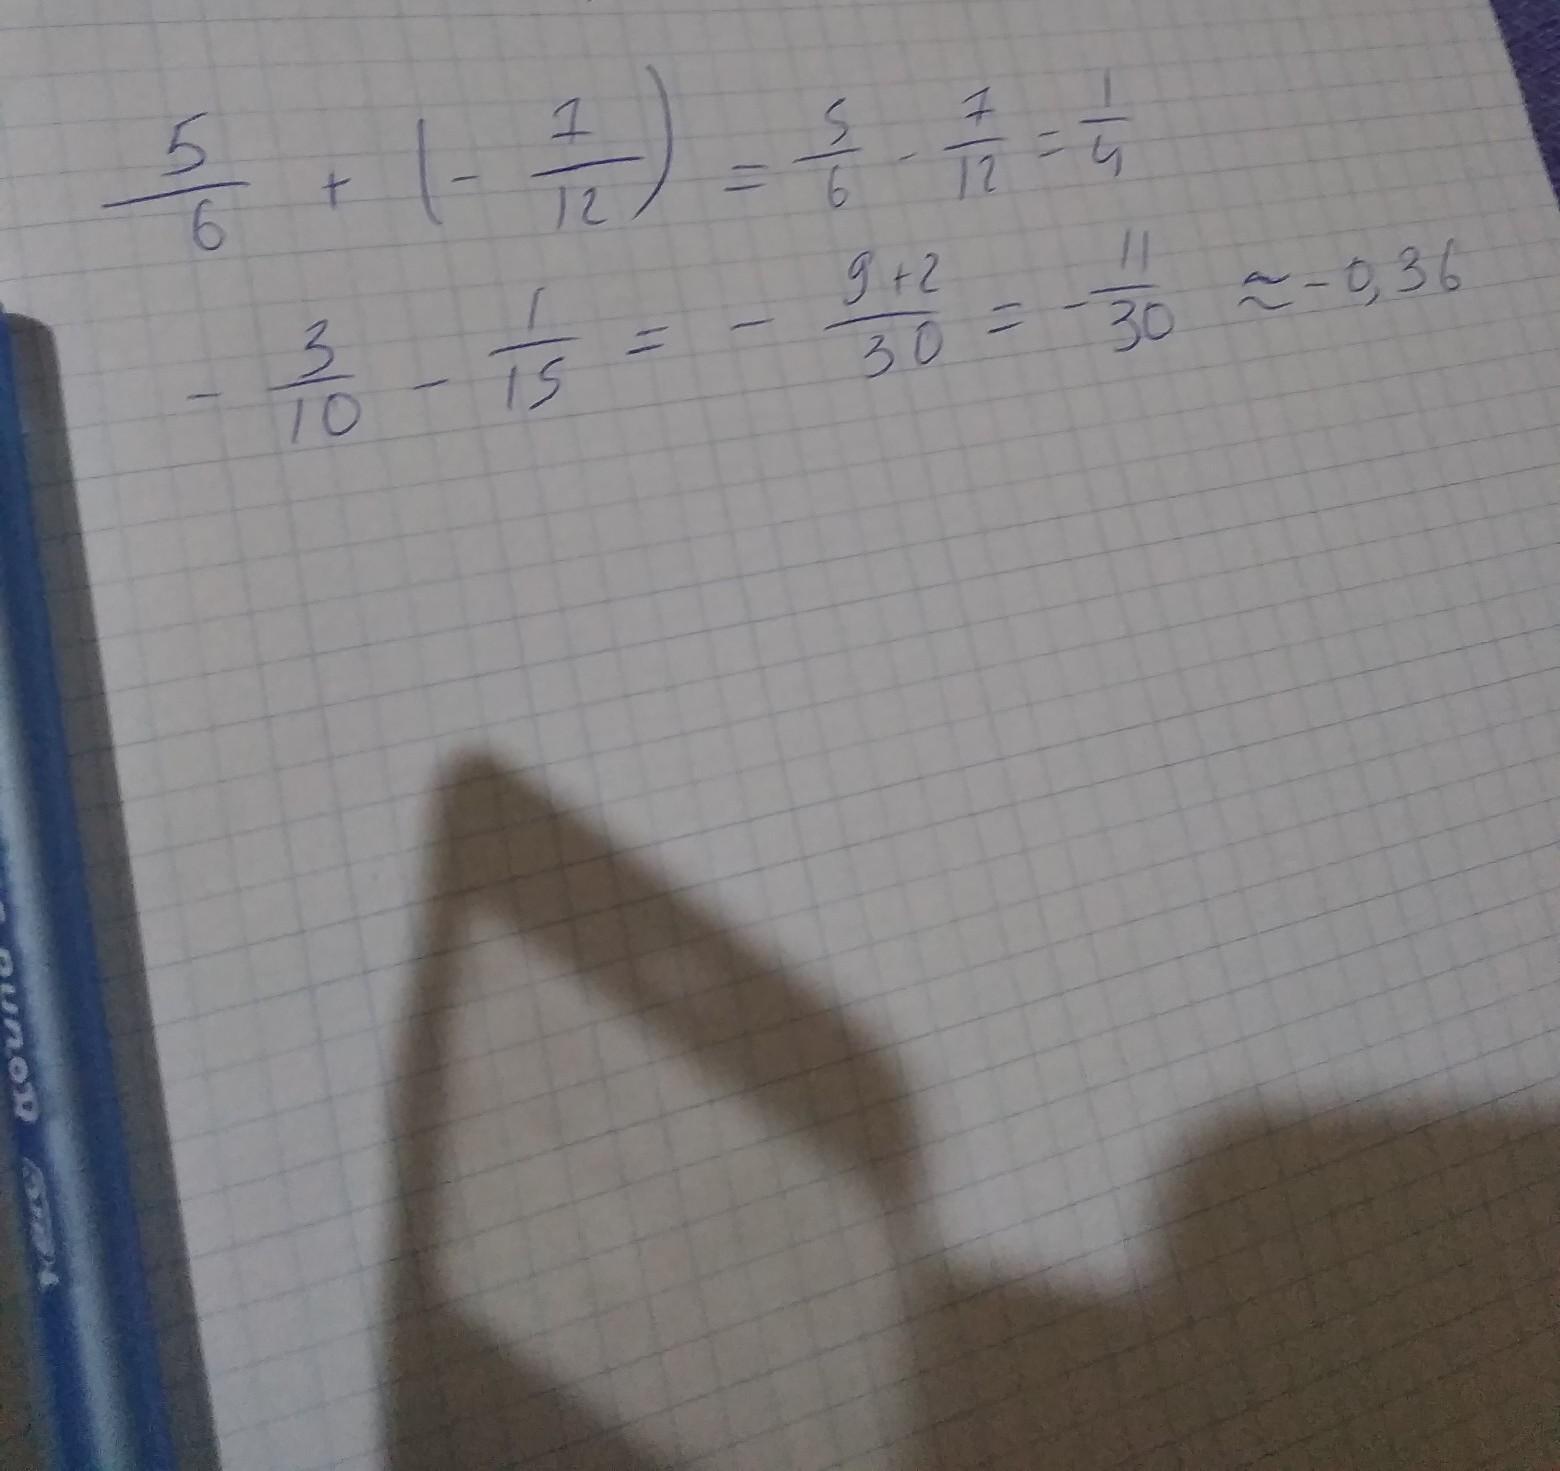 5/6 + (- 7/12) = 5/6 - 7/12 = 1/4
- 3/10 - 1/15 = - 9+2/30 = - 11/30 ≈ - 0,36